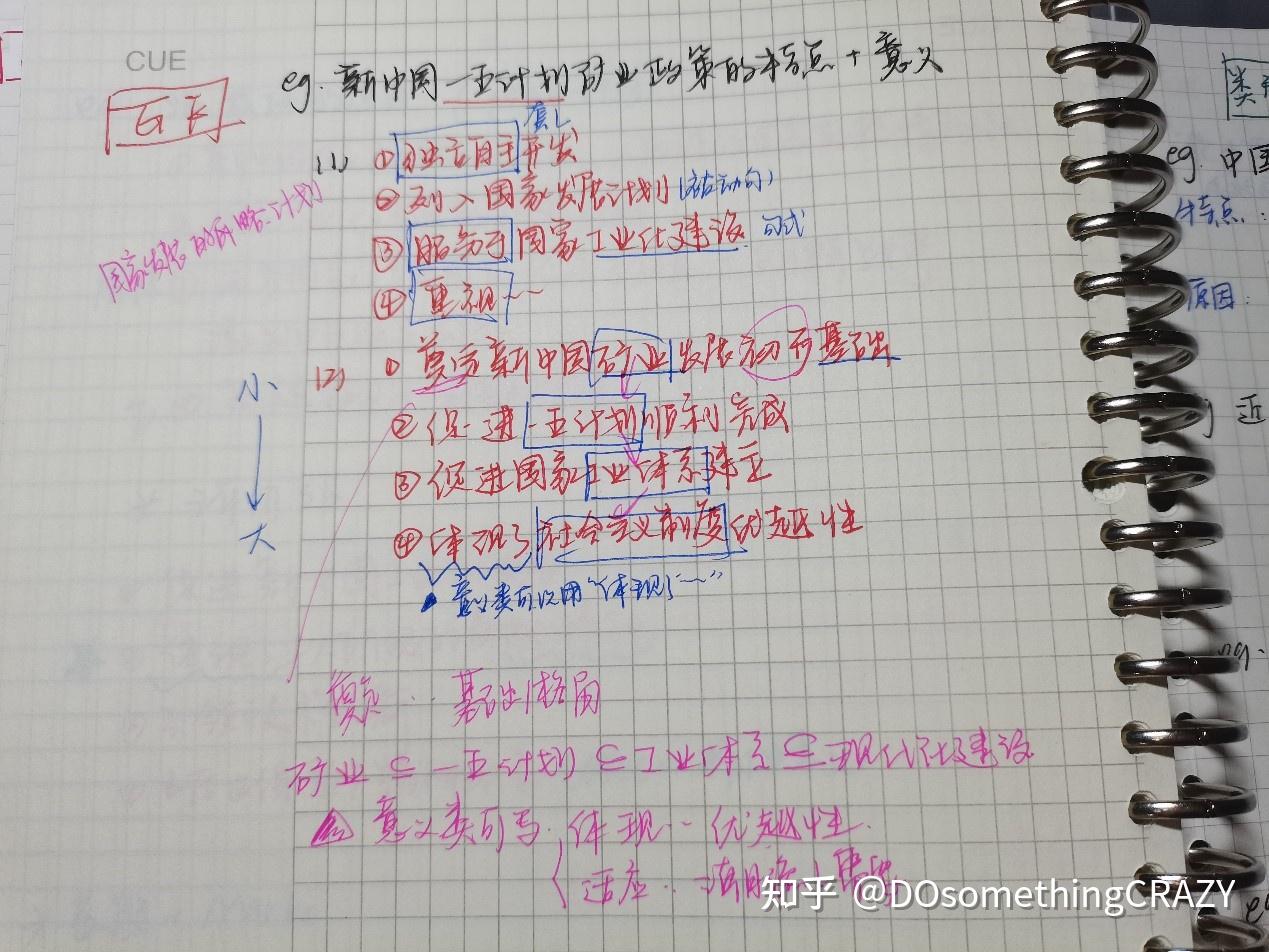 CUE
eg. 新中国一五计划矿业政策的特点 + 意义
GK
(1) ① 独立自主开发
② 列入国家发展计划
③ 服务于国家工业化建设 句式
④ 重视……
国家发展的战略、计划
(2) ① 奠定新中国矿业发展初步基础
② 促进一五计划顺利完成
③ 促进国家工业体系建立
④ 体现了社会主义制度优越性
小
大
意义类可以用“体现了……”
奠定…基础/格局
矿业 一五计划 工业体系 现代化建设
意义类可写 体现…优越性
适应
知乎 @DOsomethingCRAZY
类
eg. 中国
特点:
原因:
近